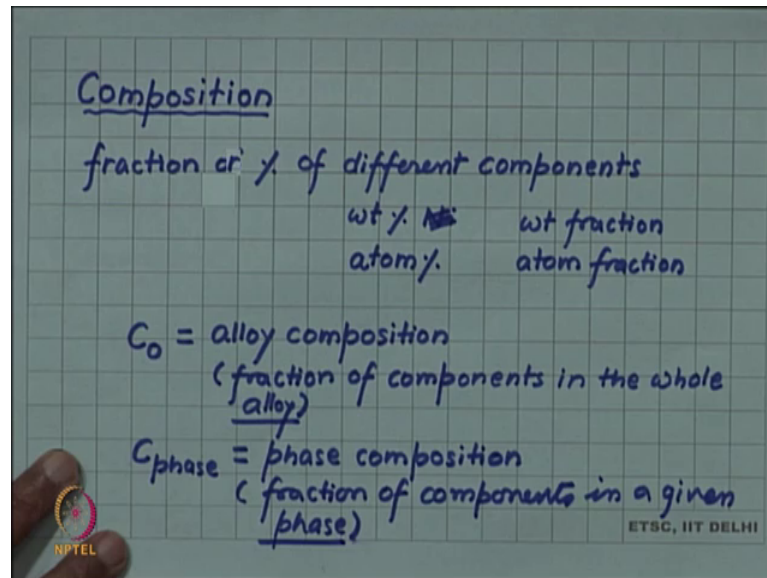 Composition
fraction or % of different components
wt % wt fraction
atom % atom fraction
C₀ = alloy composition
(fraction of components in the whole
alloy)
C phase = phase composition
(fraction of components in a given
phase)
ETSC, IIT DELHI
NPTEL